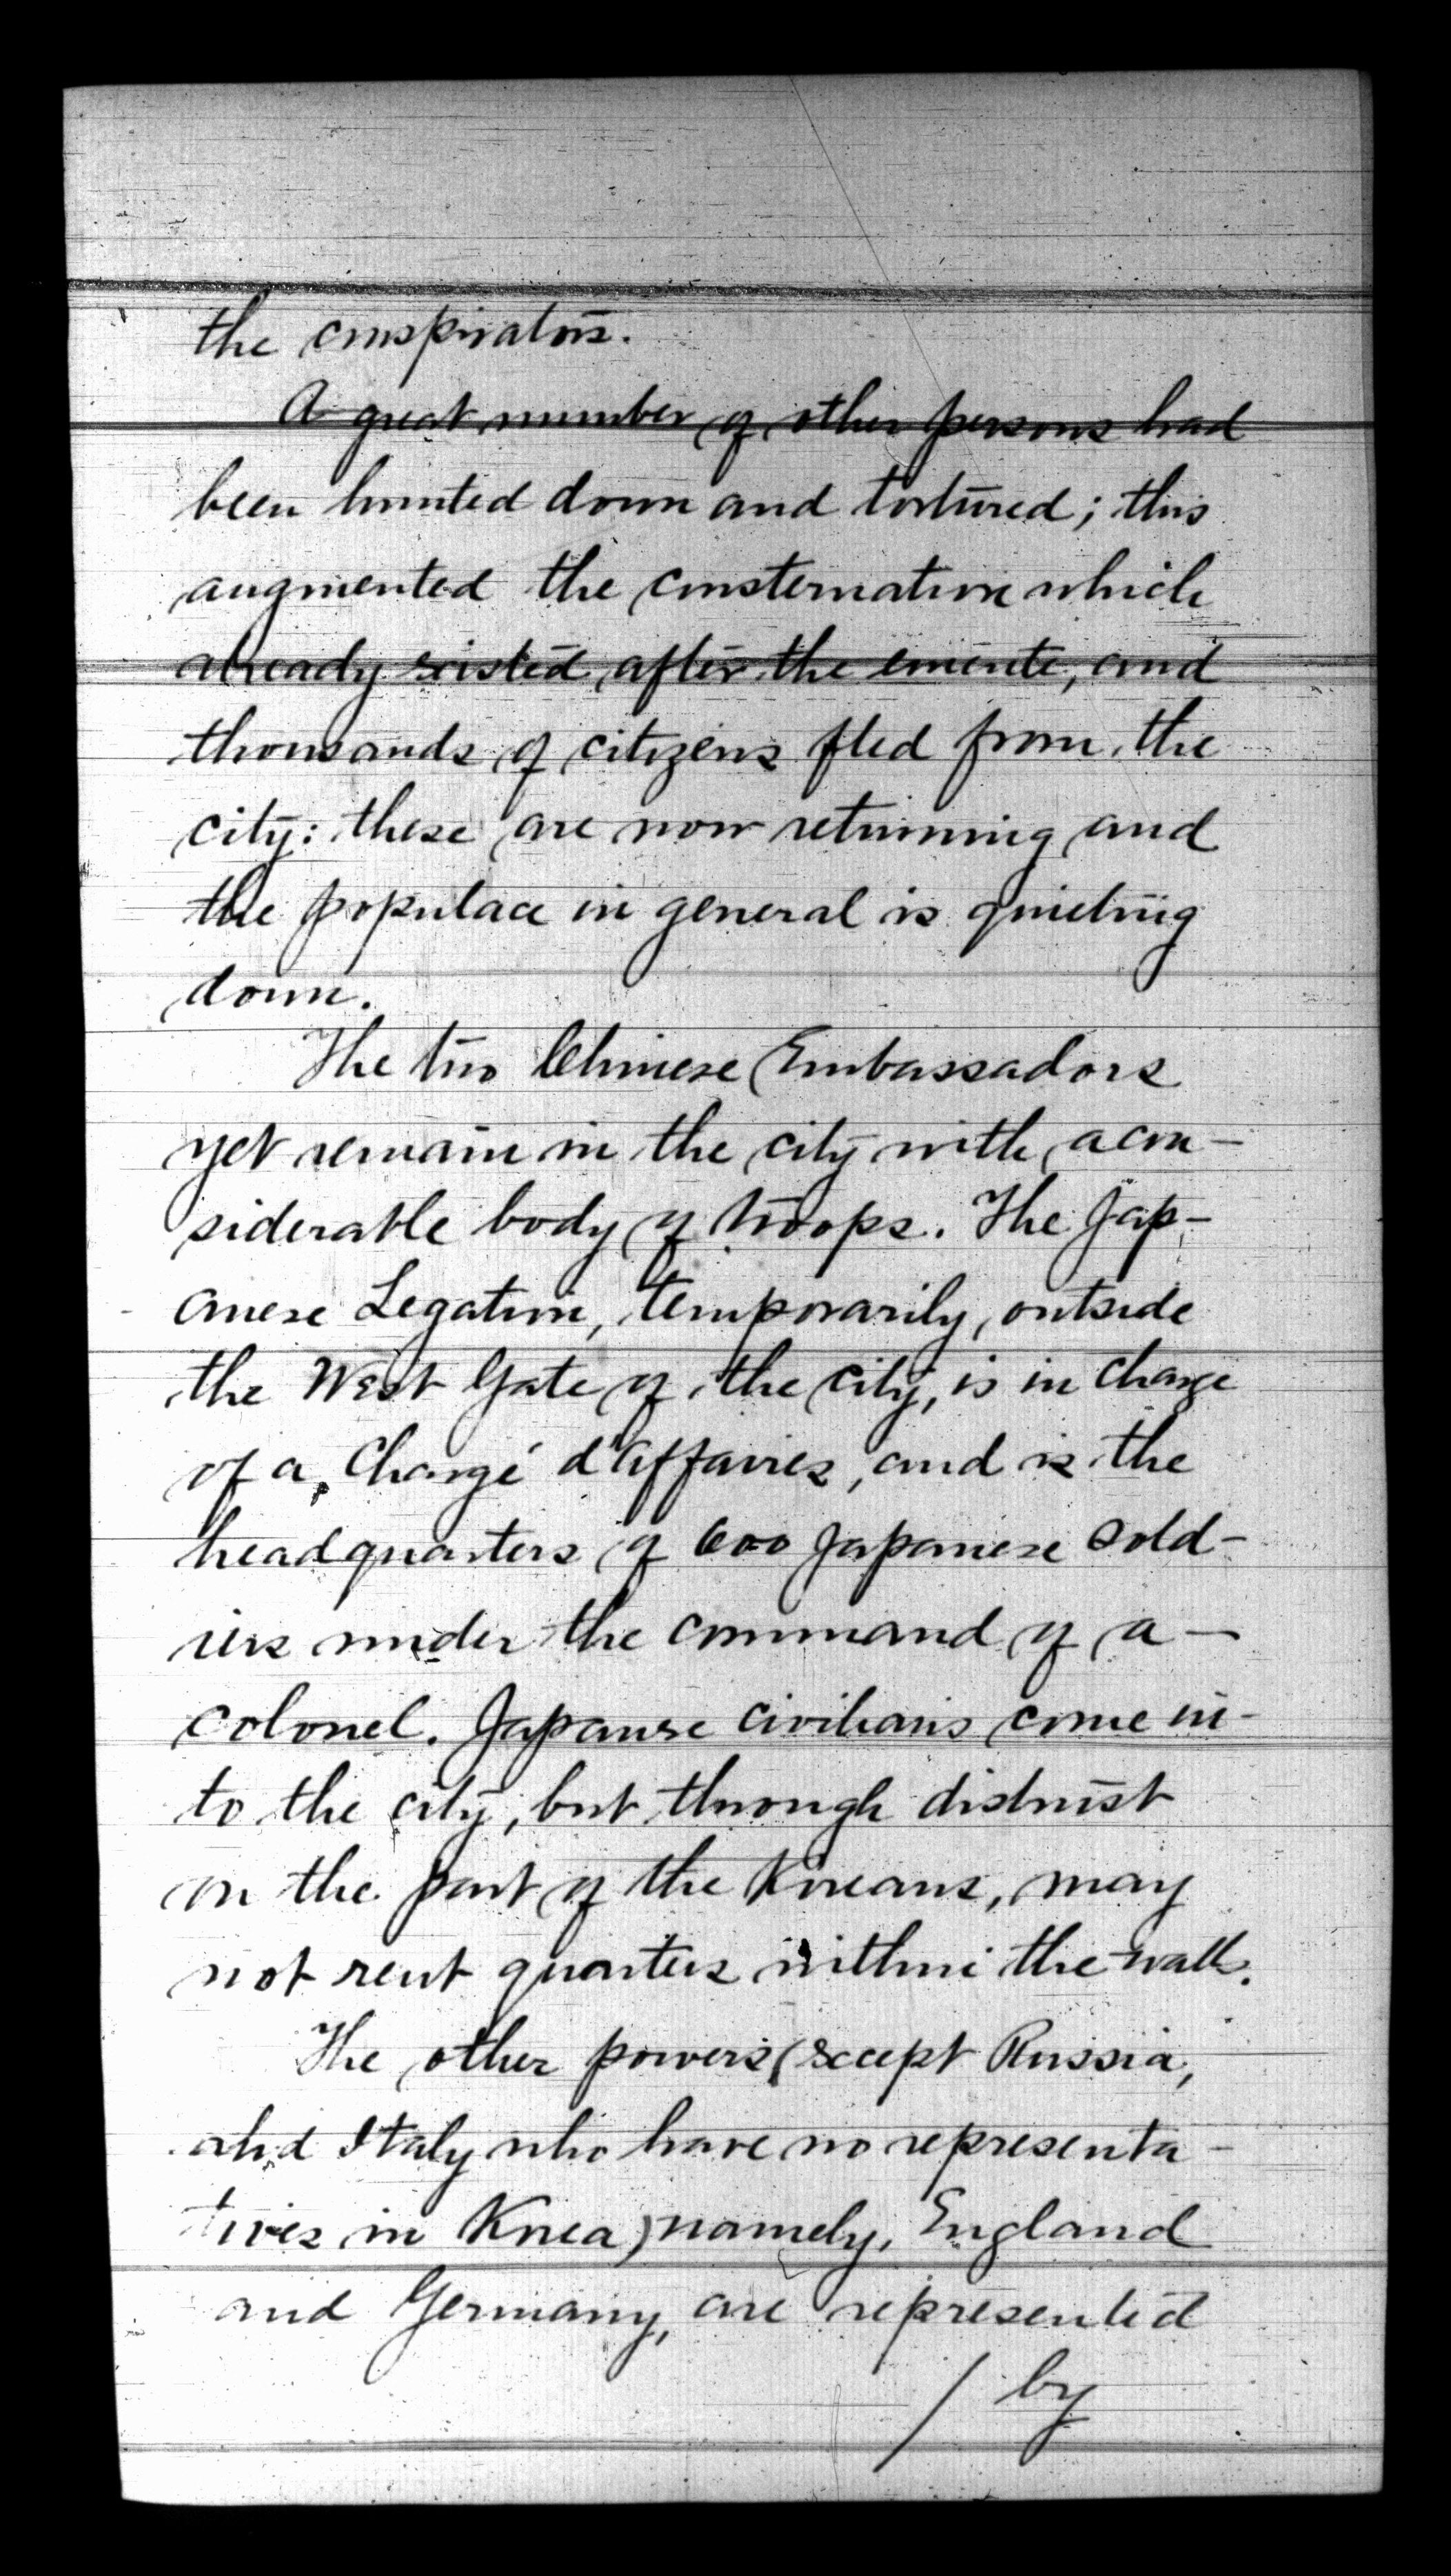 the conspirators.
A great number of other persons had
been hunted down and tortured; this
augmented the consternation which
already existed after the emeute, and
thousands of citizens fled from the
city: these are now returning and
the populace in general is quieting
down.
The two Chinese Embassadors
yet remain in the city with a con-
siderable body of troops. The Jap-
anese Legation, temporarily, outside
the West Gate of the city, is in charge
of a, Chargé d'affaires, and is the
headquarters of 600 Japanese sold-
iers under the command of a —
colonel. Japanese civilians come in-
to the city, but through distrust
on the part of the Koreans, may
not rent quarters within the walls.
The other powers (except Russia,
and Italy who have no representa-
tives in Korea) namely, England
and Germany, are represented
/ by